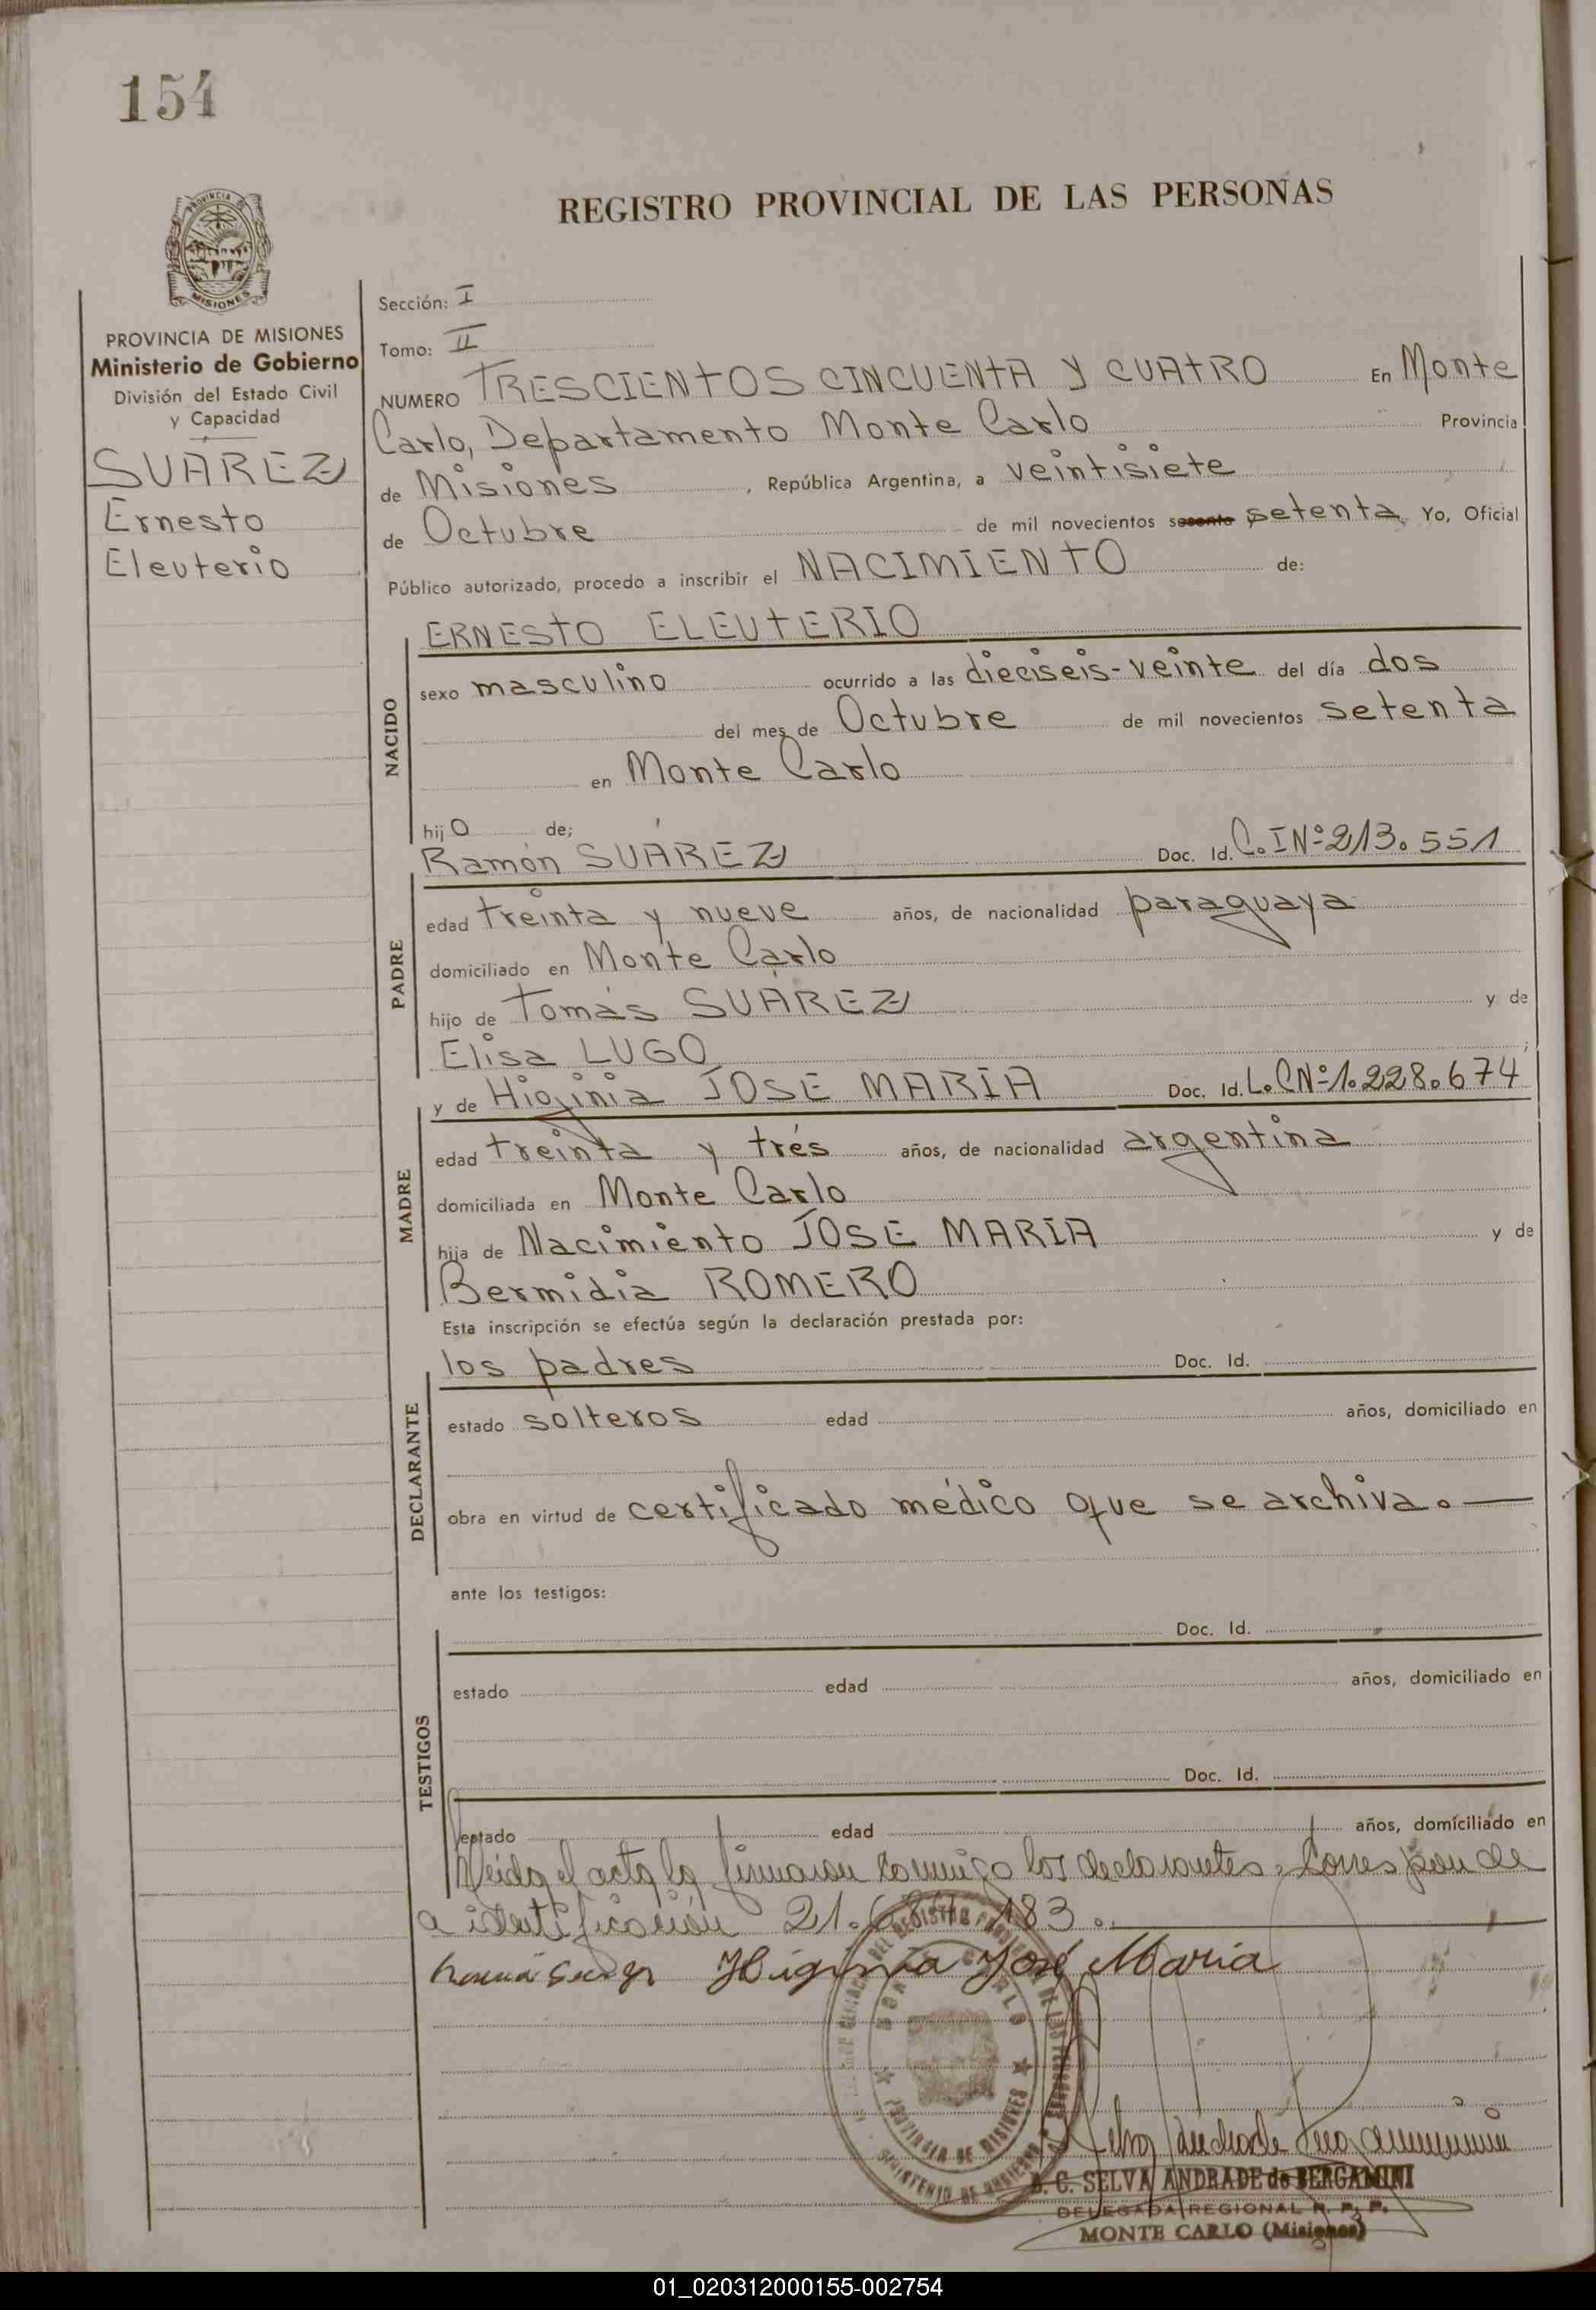 154
REGISTRO PROVINCIAL DE LAS PERSONAS
PROVINCIA DE
MISIONES
PROVINCIA DE MISIONES
Ministerio de Gobierno
División del Estado Civil
y Capacidad
SUAREZ
Ernesto
Eleuterio
Sección: I
Tomo: II
NUMERO TRESCIENTOS CINCUENTA y CUATRO En Monte
Carlo, Departamento Monte Carlo Provincia
de Misiones, República Argentina, a veintisiete
de Octubre de mil novecientos sesenta setenta Yo, Oficial
Público autorizado, procedo a inscribir el NACIMIENTO de:
NACIDO
ERNESTO ELEUTERIO
sexo masculino ocurrido a las dieciseis-veinte del día dos
del mes de Octubre de mil novecientos setenta
en Monte Carlo
hijo de;
PADRE
Ramón SUÁREZ Doc. Id. C. I Nº 213.551
edad treinta y nueve años, de nacionalidad paraguaya
domiciliado en Monte Carlo
hijo de Tomás SUÁREZ y de
Elisa LUGO ;
MADRE
y de Higinia JOSE MARIA Doc. Id. L. C Nº 1.228.674
edad treinta y trés años, de nacionalidad argentina
domiciliada en Monte Carlo
hija de Nacimiento JOSE MARIA y de
Bermidia ROMERO
Esta inscripción se efectúa según la declaración prestada por:
DECLARANTE
los padres Doc. Id.
estado solteros edad años, domiciliado en
obra en virtud de certificado médico que se archiva.—
ante los testigos:
TESTIGOS
Doc. Id.
estado edad años, domiciliado en
Doc. Id.
estado edad años, domiciliado en
Leida el acta la firmaron conmigo los declarantes. Corresponde
a identificación 21. 183.
Higinia José Maria
MONTE CARLO
PROVINCIA DE MISIONES
MINISTERIO DE GOBIERNO
C. SELVA ANDRADE de BERGAMINI
DELEGADA REGIONAL R. P. P.
MONTE CARLO (Misiones)
01_020312000155-002754